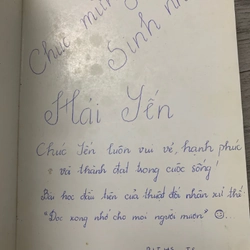 Chúc mừng
Sinh nh
Hải Yến
Chúc Yến luôn vui vẻ, hạnh phúc
và thành đạt trong cuộc sống!
Bài học đầu tiên của thuật đối nhân xử thế
"Đọc xong nhớ cho mọi người mượn ☺...